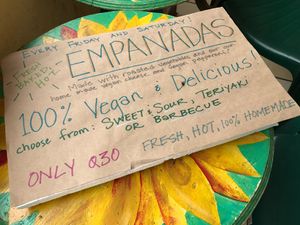 EVERY FRIDAY AND SATURDAY!
EMPANADAS
- FRESH BAKED, HOT
Made with roasted vegetables and our own
home made vegan cheese and vegan pepperoni!
100% Vegan & Delicious!
choose from: SWEET & SOUR, TERIYAKI
OR BARBECUE
ONLY Q30
FRESH, HOT, 100% HOMEMADE